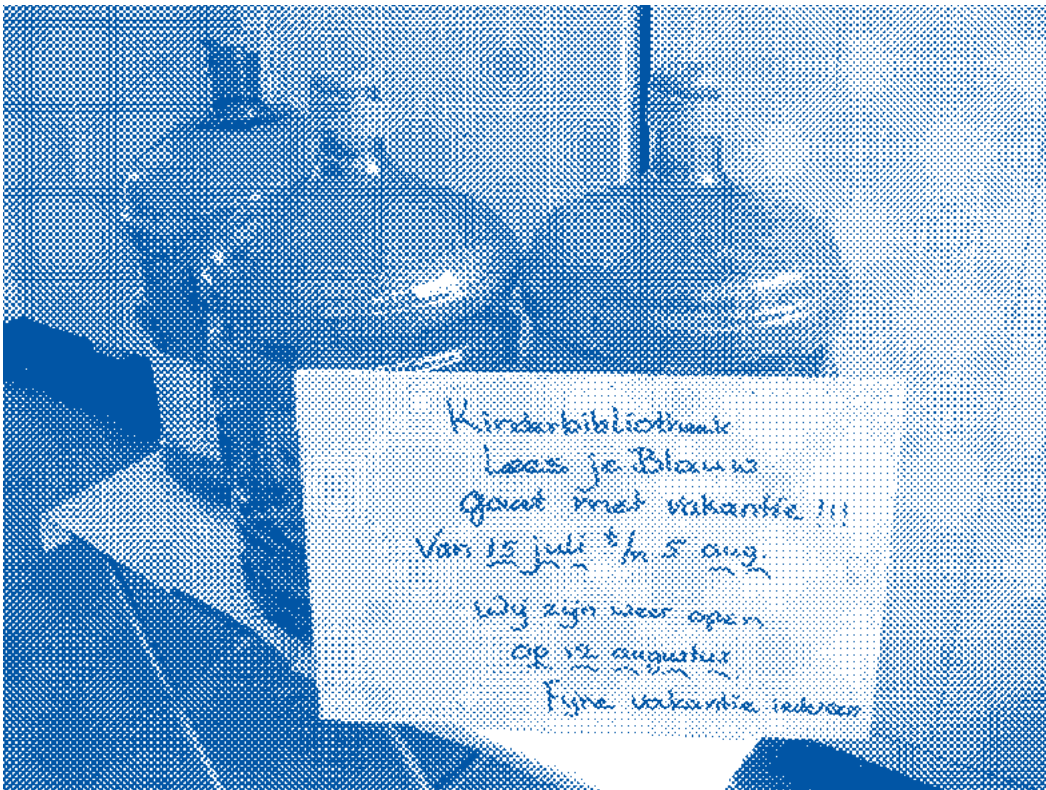 Kinderbibliotheek
Lees je Blauw
gaat met vakantie !!!
Van 15 juli t/m 5 aug.
Wij zijn weer open
op 12 augustus
Fijne vakantie iedereen